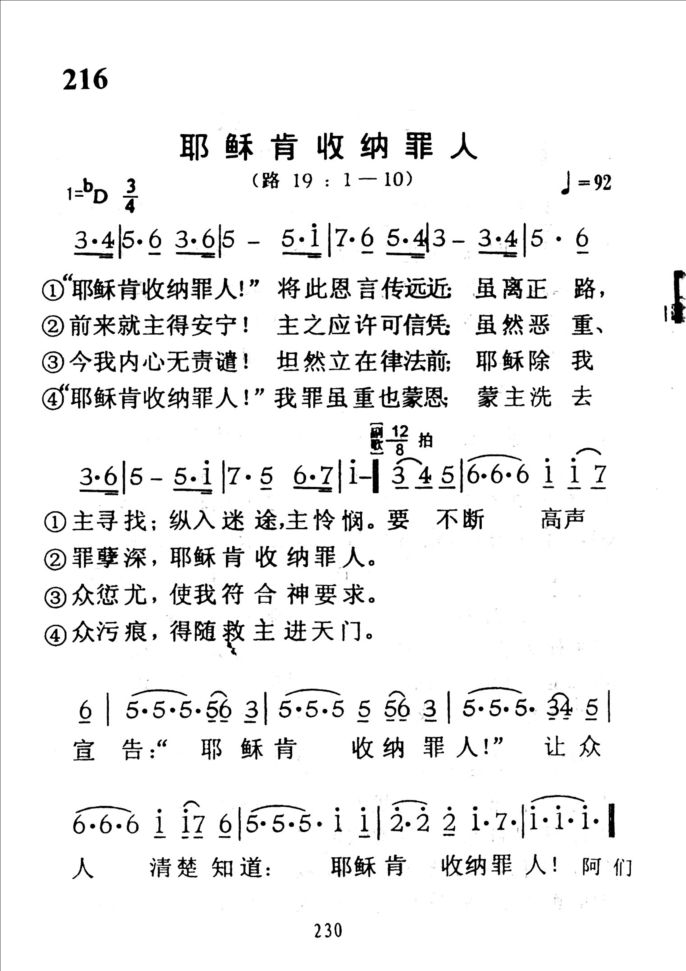 216
耶稣肯收纳罪人
(路 19 : 1—10)
1=ᵇD 3/4 ♩=92
3·4|5·6 3·6|5 - 5·i|7·6 5·4|3- 3·4|5 · 6
①“耶稣肯收纳罪人!” 将此恩言传远近; 虽离正 路,
②前来就主得安宁! 主之应许可信凭; 虽然恶 重、
③今我内心无责谴! 坦然立在律法前; 耶稣除 我
④“耶稣肯收纳罪人!”我罪虽重也蒙恩; 蒙主洗 去
[副歌] 12/8 拍
3·6|5 - 5·i|7·5 6·7|i-‖ 3 4 5|6·6·6 i i 7
①主寻找; 纵入迷途,主怜悯。要 不断 高声
②罪孽深, 耶稣肯收纳罪人。
③众愆尤, 使我符合神要求。
④众污痕, 得随救主进天门。
6 | 5·5·5·56 3|5·5·5 5 56 3|5·5·5· 34 5|
宣 告:“ 耶稣肯 收纳罪人!” 让众
6·6·6 i i7 6|5·5·5· i i|2·2· 2 i·7·|i·i·i·‖
人 清楚知道: 耶稣肯 收纳罪人! 阿们
230